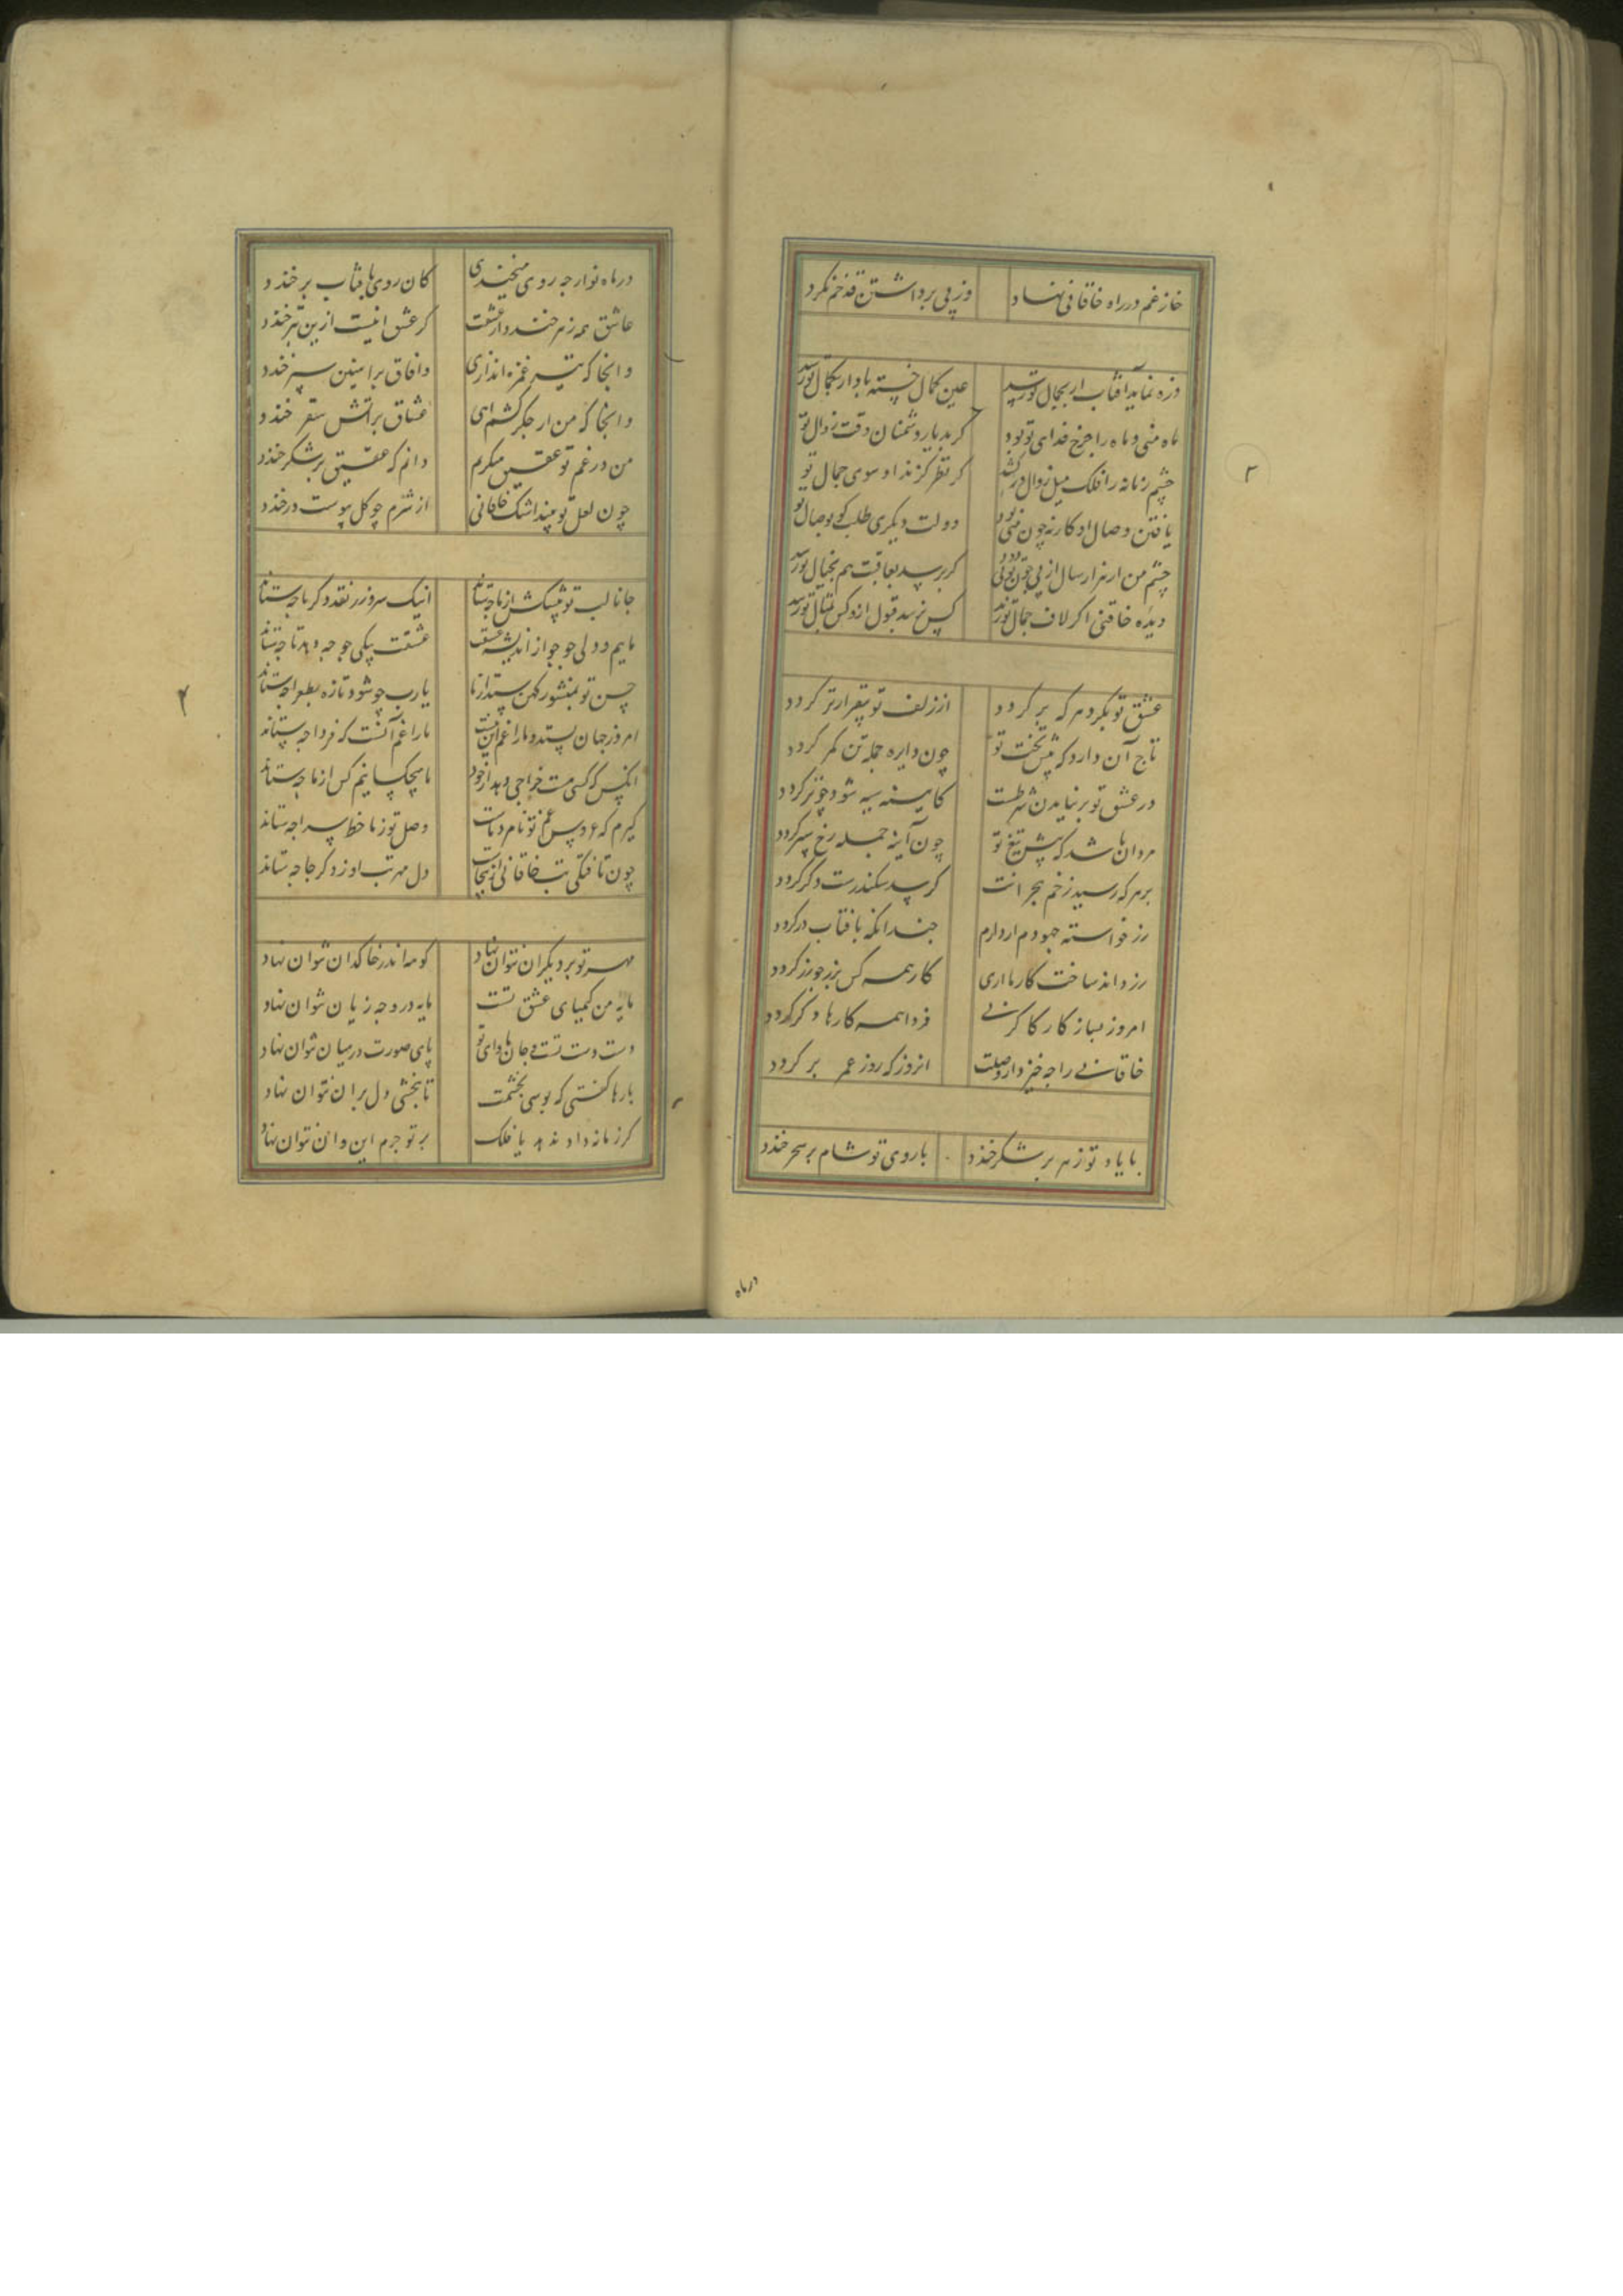 خار غم در راه خاقانی نهاد وز پی برداشتن قد خم نکرد
ذره نماید آفتاب ار بجمال تو رسد عین کمال خسته باد ار بکمال تو رسد
ماه منی و ماه را چرخ فدای تو بود گر بدیار دشمنان وقت زوال تو
چشم زمانه را فلک میل زوال درکشد گر نظر گزند او سوی جمال تو
یافتن وصال او کار نه چون منی بود دولت دیگری طلب کو بوصال تو
چشم من ار هزار سال از پی چون تویی دود گر برسد بعاقبت هم بخیال تو رسد
دیده خاقنی اگر لاف جمال تو زند کس نرسد قبول ازو کس بمثال تو رسد
عشق تو بگرد هر که بر گردد از زلف تو بیقرارتر گردد
تاج آن دارد که پیش تخت تو چون دایره جمله تن کمر گردد
در عشق تو بر نیامدن شرطست کایینه سیه شود چو تر گردد
مردان باشد که پیش تیغ تو چون آینه جمله رخ سپر گردد
بر هر که رسید زخم هجرانت گر سد سکندرست در گردد
زر خواسته چو دم ار دارم چندانکه بافتاب در گردد
زر داند ساخت کار ما اری کار همه کس بزر چو زر گردد
امروز بساز کار کار کنی فردا همه کارها دگر گردد
خاقانی را چه خیزد از وصلت انروز که روز عمر بر گردد
با یاد تو زهر بر شکر خندد با روی تو شام بر سحر خندد
درماه
در ماه نو ار چه روی میخندی کان روی بافتاب بر خندد
عاشق همه زهر خندد از عشقت گر عشق اینست ازین بتر خندد
و انجا که تیر غمزه اندازی و افاق بر اینین سپر خندد
و انجا که من از جگر کشم اهی عشاق براتش سقر خندد
من در غم تو عقیق میگریم دانم که عقیق بر شکر خندد
چون لعل تو بیند اشک خاقانی از شرم چو گل بپوست در خندد
جانا لب تو پیشکش از ما چه ستاند اینک سر و زر نقد دگر ما چه ستاند
ماییم و دلی جو جو از اندیشه عشقت عشقت بیکی جو چه دهد تا چه ستاند
حسن تو بمنشور کهن بستد از ما یارب چو شود تازه بطغرا چه ستاند
امروز جهان بستد و ما را غم این نیست ما را غم آنست که فردا چه ستاند
انکس که کسی هست خراجی دهد از خود ما هیچکسانیم کس از ما چه ستاند
گیرم که عروس غم تو نام دو ماست وصل تو ز ما خط پسرا چه ستاند
چون تافتگی تب خاقانی از انجاست دل مهر تب او ز دگر جا چه ستاند
مهر تو بر دیگران نتوان نهاد گوهر اندر خاکدان نتوان نهاد
مایه من کیمیای عشق تست مایه در وجه زیان نتوان نهاد
دست دست تست و جان ماوای تو پای صورت در میان نتوان نهاد
بارها گفتی که بوسی بخشمت تا نبخشی دل بران نتوان نهاد
گر زمانه داد ندهد یا فلک بر تو جرم این و ان نتوان نهاد